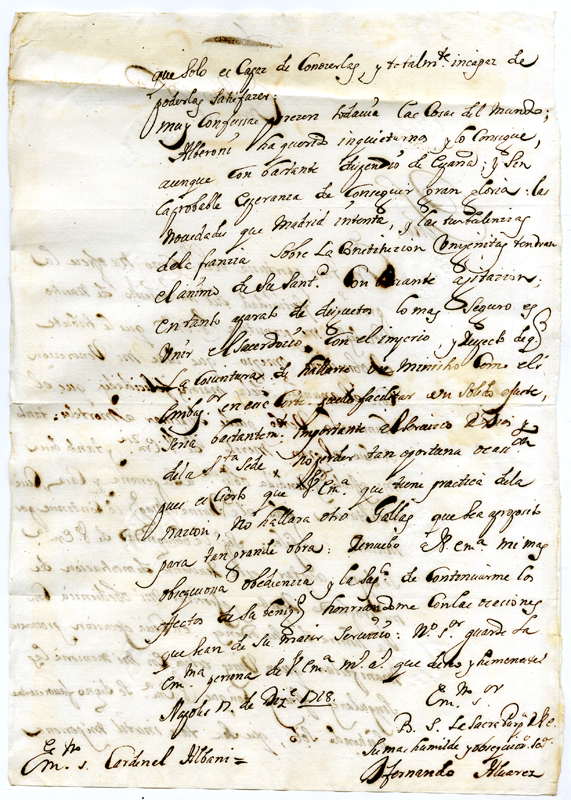 que solo es Capaz de Conozerlas, y totalmte. incapaz de
poderlas satisfazer:
muy Confussas parezen todavia las Cosas del Mundo;
Alberoni ha querido inquietarnos, y lo Consigue,
aunque con bastante dispendio de España: y sin
la probable Esperanza de Conseguir gran gloria: las
novedades que Madrid intenta, y las turbulenzias
de la francia sobre La Constitucion Unigenitus tendran
el animo de su Santd. con bastante agitazion;
en tanto aparato de disgustos lo mas seguro es
Unir el Sacerdocio con el imperio, y respecto de q.
La Coyuntura de hallarse un Ministro Como el sr.
Embxor. en esa Corte puede facilitar un solido ajuste,
seria bastantemte. importante al servicio de Dios y
de la Sta. Sede no perder tan oportuna ocasion
pues es Cierto que V. Ema. que tiene practica de la
nacion, no hallara otro Gallas que sea aproposito
para tan grande obra: renuebo a V. ema. mi mas
obsequiosa obedienzia y la supca. de Continuarme los
efectos de su benigd. honrandome con las ocasiones
que sean de su maior servicio: Nro. sor. guarde la
Emma. persona de V. Ema. ms. as. que deseo y he menester
Napoles 17. de Dize. 1718.
Emo. sor.
B. S. Le Sacra Purpa. d V. E.
su mas humilde y obsequioso sor.
Fernando Alvarez
Emo. s. Cardenal Albani =